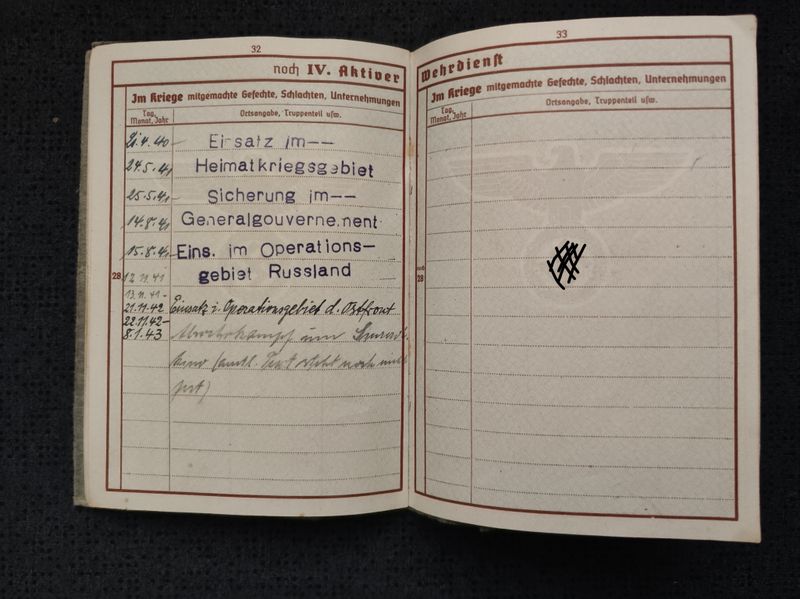 32
noch IV. Aktiver
Im Kriege mitgemachte Gefechte, Schlachten, Unternehmungen
Tag, Monat, Jahr
Ortsangabe, Truppenteil usw.
21.4.40 – Einsatz im--
24.5.41 Heimatkriegsgebiet
25.5.41 – Sicherung im--
14.8.41 Generalgouvernement
15.8.41 Eins. im Operations-
28 12.11.41 gebiet Russland
13.11.41-
21.11.42 Einsatz i. Operationsgebiet d. Ostfront
22.11.42- Abwehrkampf um
8.1.43
(amtl. Text steht noch nicht
fest)
33
Wehrdienst
Im Kriege mitgemachte Gefechte, Schlachten, Unternehmungen
Tag, Monat, Jahr
Ortsangabe, Truppenteil usw.
noch
28